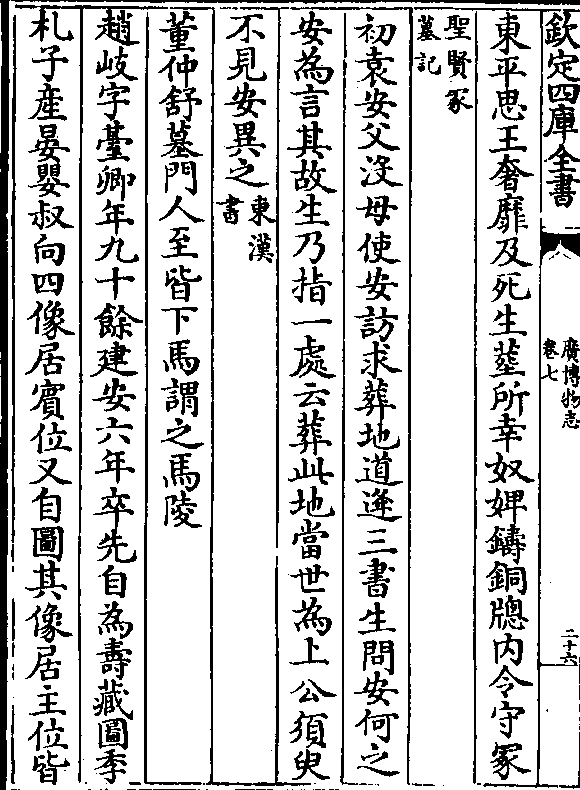 欽定四庫全書
廣博物志
卷七
二十六
東平思王奢靡及死生塟所幸奴婢鑄銅牎内令守冢
聖賢冢
墓記
初袁安父没母使安訪求葬地道逢三書生問安何之
安為言其故生乃指一處云葬此地當世為上公須臾
不見安異之東漢
書
董仲舒墓門人至皆下馬謂之馬陵
趙岐字臺卿年九十餘建安六年卒先自為壽藏圖季
札子産晏嬰叔向四像居賓位又自圖其像居主位皆